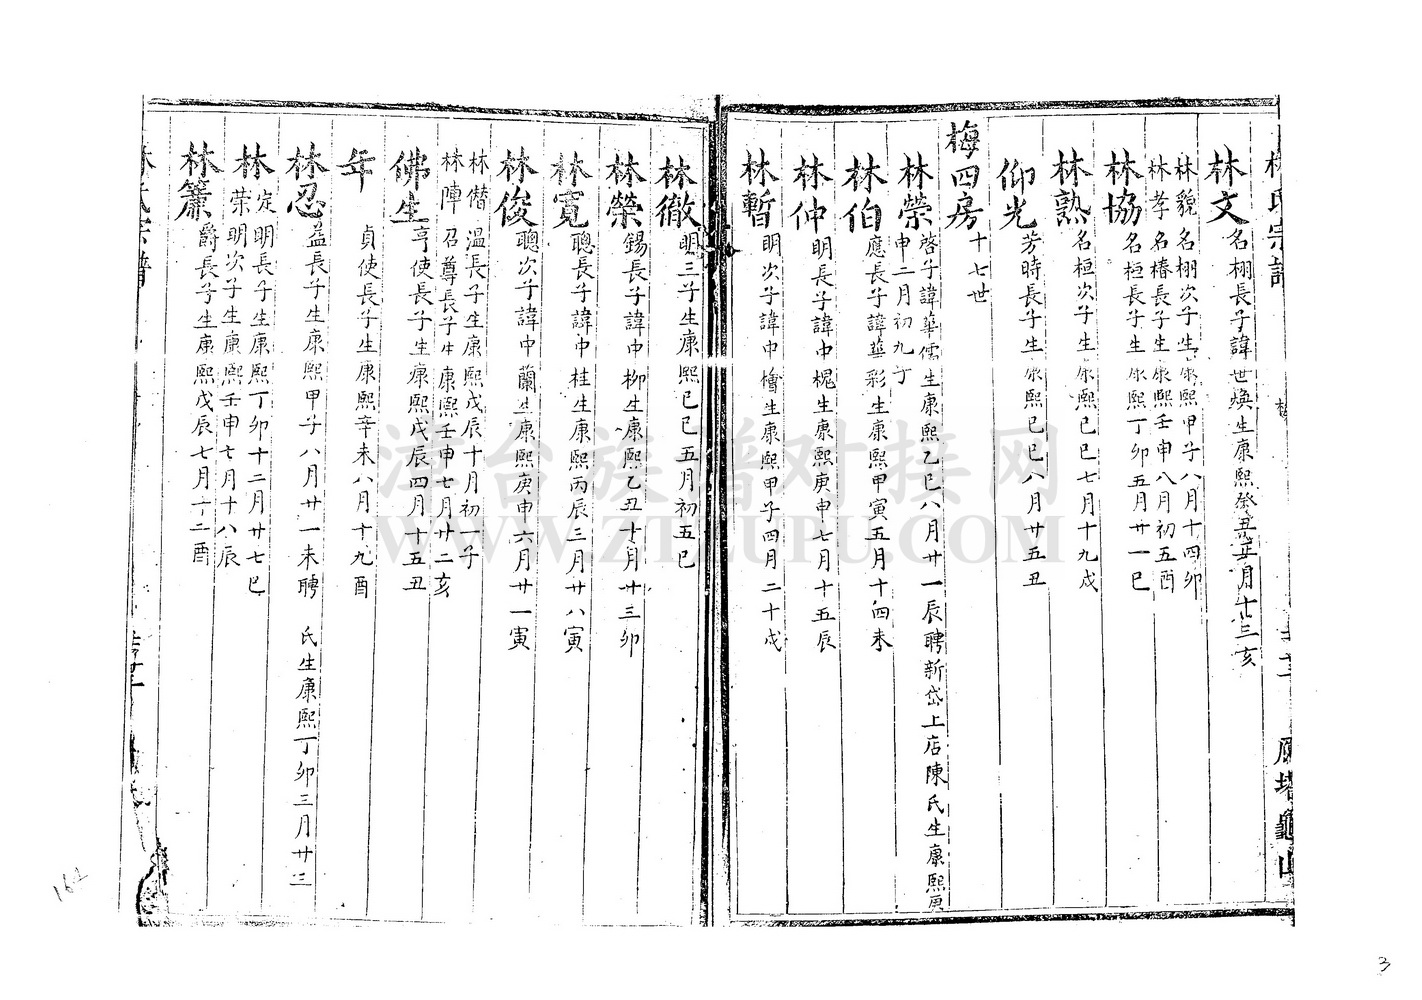 林氏宗譜
林文 名栩長子諱世煥生康熙癸丑正月廿三亥
林貌 名栩次子生康熙甲子八月十四卯
林孝 名椿長子生康熙壬申八月初五酉
林協 名桓長子生康熙丁卯五月廿一巳
林熟 名桓次子生康熙己巳七月十九戌
仰光 芳時長子生康熙己巳八月廿五丑
梅四房 十七世
林榮 啓子諱華儒生康熙乙巳八月廿一辰聘新岱上店陳氏生康熙庚
申二月初九丁
林伯 應長子諱華彩生康熙甲寅五月十四未
林仲 明長子諱中榥生康熙庚申七月十五辰
林暫 明次子諱中檜生康熙甲子四月二十戌
林徹 明三子生康熙己巳五月初五巳
林榮 錫長子諱中柳生康熙乙丑十月廿三卯
林寬 聰長子諱中桂生康熙丙辰三月廿八寅
林俊 聰次子諱中蘭生康熙庚申六月廿一寅
林僣 温長子生康熙戊辰十月初一子
林陣 召尊長子生康熙壬申七月廿二亥
佛生 亨使長子生康熙戊辰四月十五丑
年 貞使長子生康熙辛未八月十九酉
林忍 益長子生康熙甲子八月廿一未聘 氏生康熙丁卯三月廿三
林定 明長子生康熙丁卯十二月廿七巳
林榮 明次子生康熙壬申七月十八辰
林簫 爵長子生康熙戊辰七月十二酉
林氏宗譜
漳台族谱对接网
WWW.ZTZUPU.COM
162
3